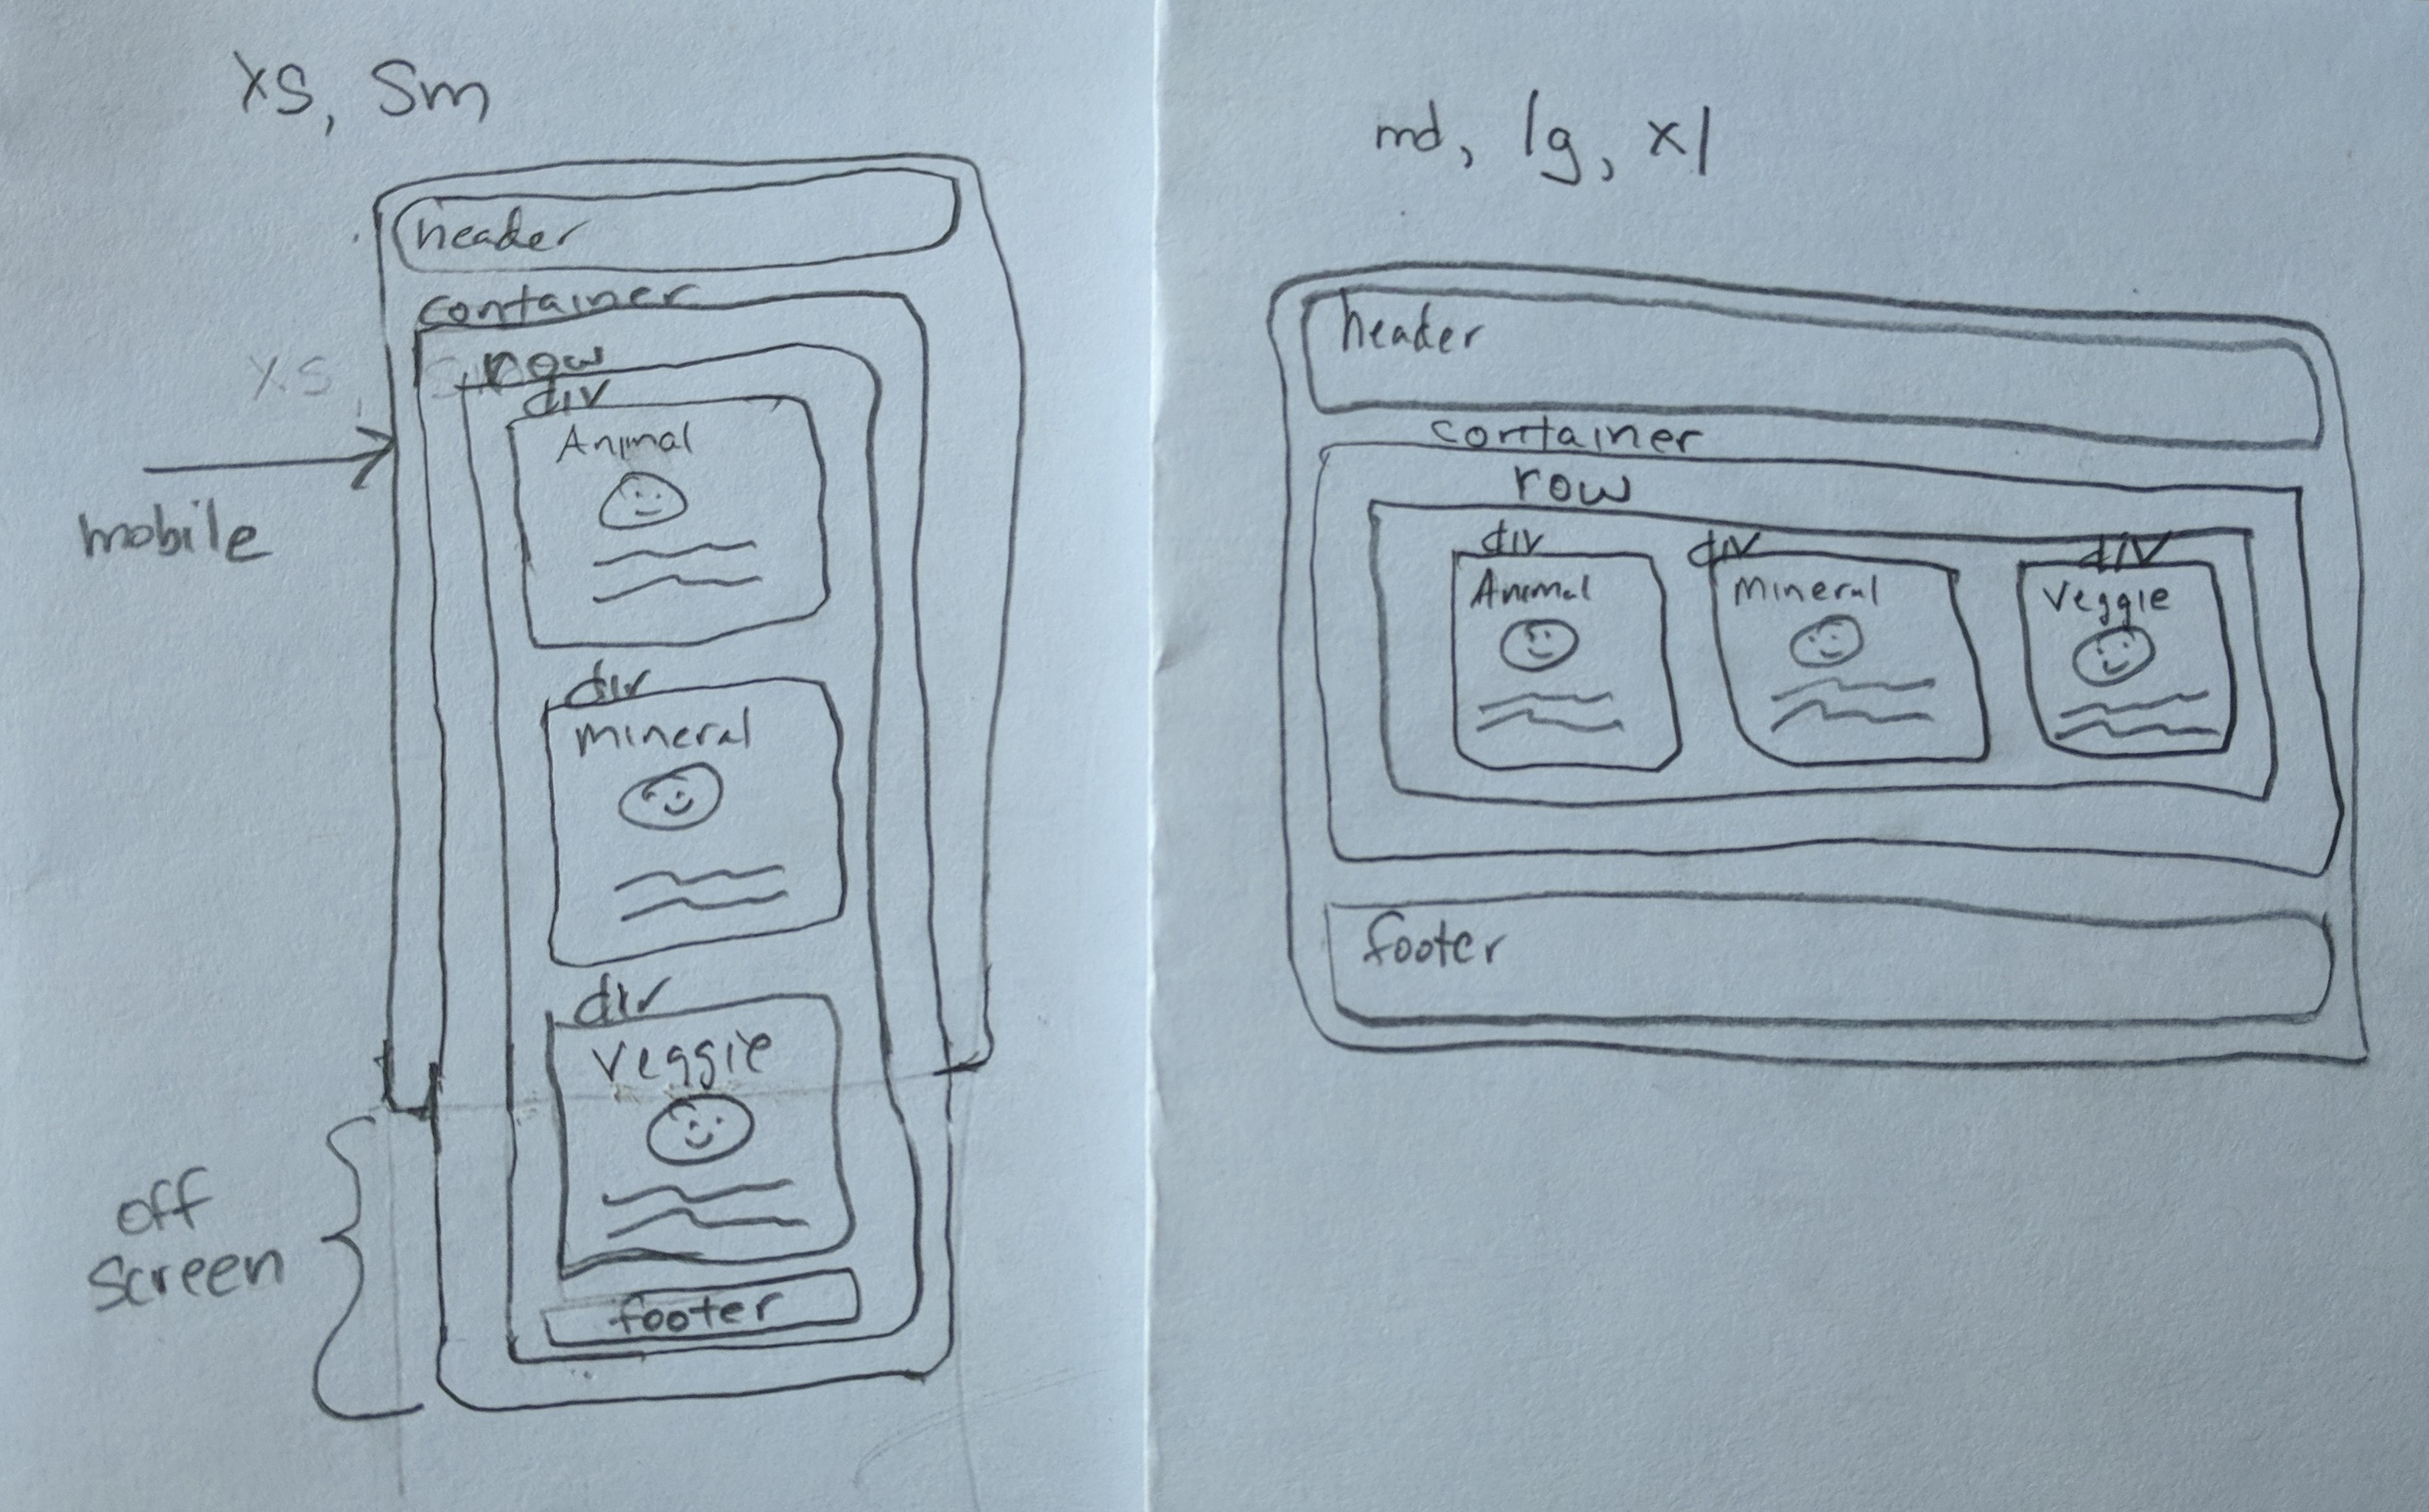 xs, Sm
header
container
row
xs,
div
Animal
mobile
div
mineral
div
Veggie
off
screen
footer
md, lg, xl
header
container
row
div div div
Animal mineral Veggie
footer